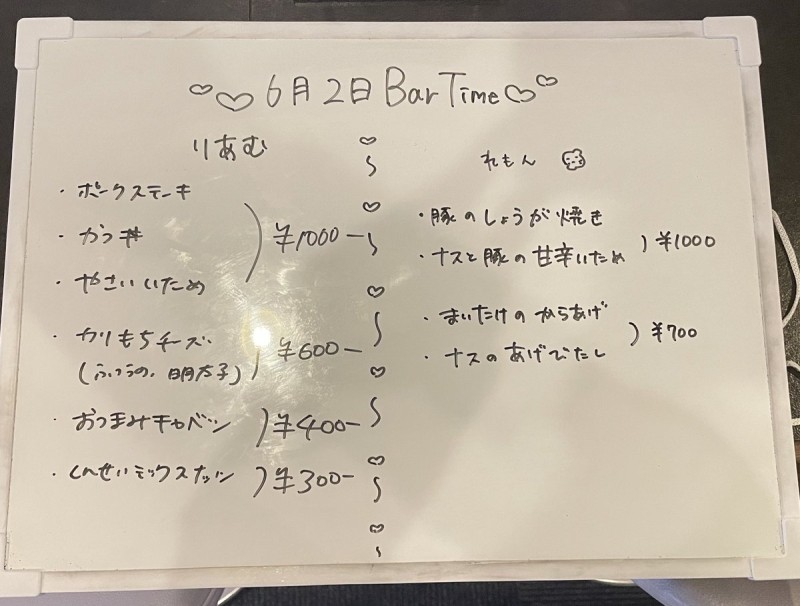 ♡♡6月2日 Bar Time♡♡
りあむ
・ポークステーキ
・かつ丼
・やさいいため
)¥1000-
・カリもちチーズ
(ふつうの、明太子)
)¥600-
・おつまみキャベツ)¥400-
・くんせいミックスナッツ)¥300-
れもん
・豚のしょうが焼き
・ナスと豚の甘辛いため
)¥1000
・まいたけのからあげ
・ナスのあげびたし
)¥700